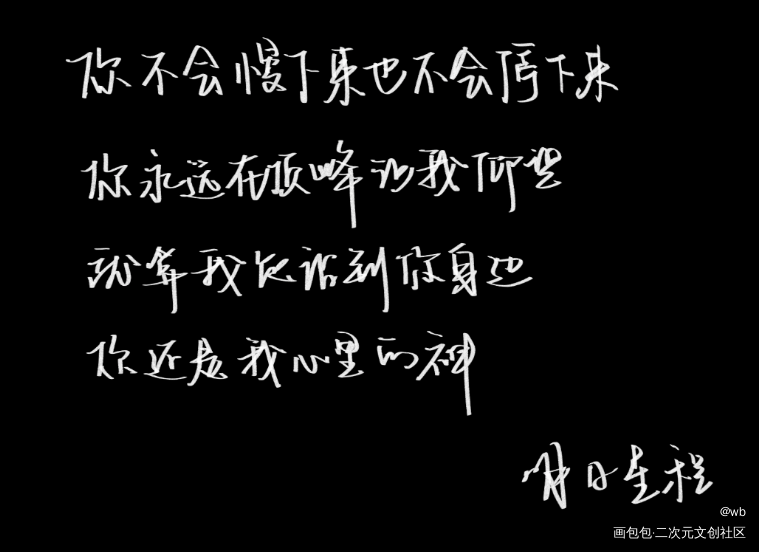 你不会慢下来也不会停下来
你永远在顶峰让我仰望
就算我已站到你身边
你还是我心里的神
明日星程
@wb
画包包·二次元文创社区